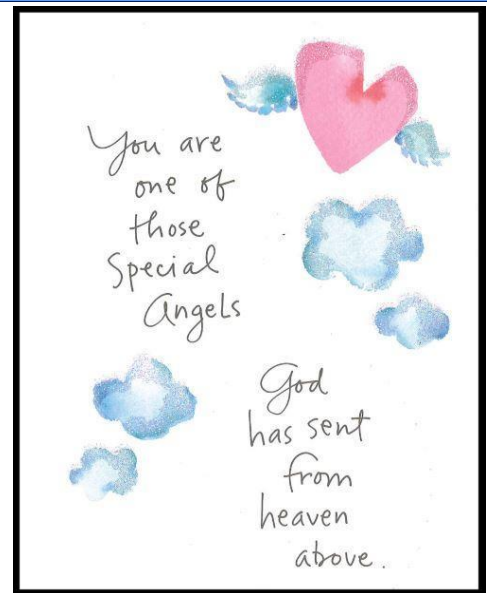 You are
one of
those
Special
Angels
God
has sent
from
heaven
above.